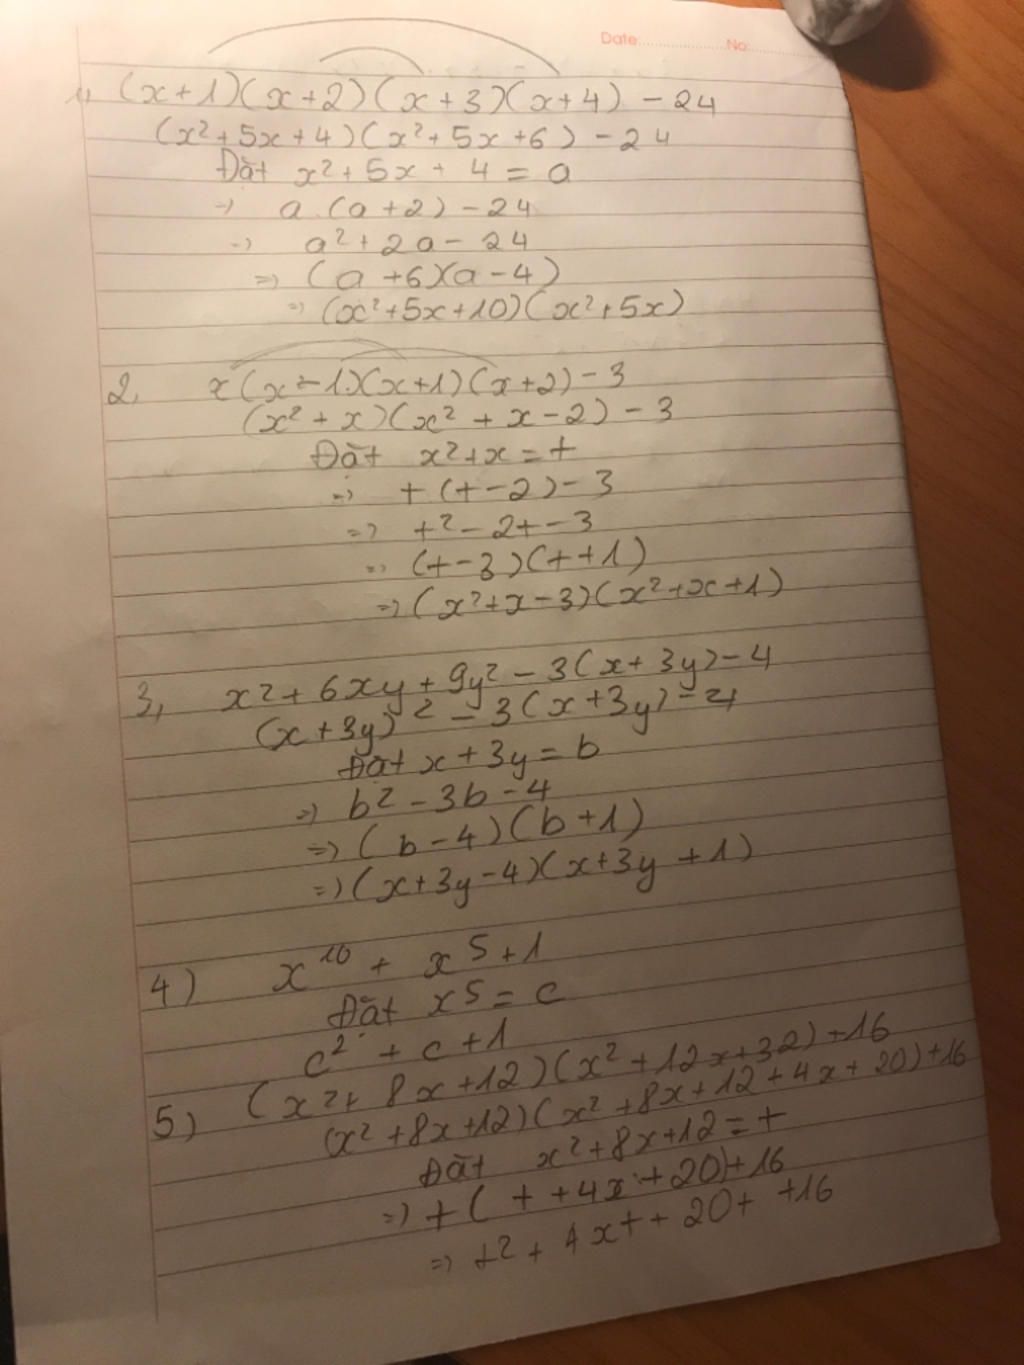 Date: No:
1, (x+1)(x+2)(x+3)(x+4) - 24
(x²+5x+4)(x²+5x+6) - 24
Đặt x²+5x+4 = a
→ a.(a+2) - 24
→ a²+2a - 24
=> (a+6)(a-4)
=> (x²+5x+10)(x²+5x)
2, x(x-1)(x+1)(x+2) - 3
(x²+x)(x²+x-2) - 3
Đặt x²+x = t
=> t(t-2) - 3
=> t²-2t-3
=> (t-3)(t+1)
=> (x²+x-3)(x²+x+1)
3, x²+6xy+9y²-3(x+3y)-4
(x+3y)²-3(x+3y)-4
Đặt x+3y = b
=> b²-3b-4
=> (b-4)(b+1)
=> (x+3y-4)(x+3y+1)
4) x¹⁰+x⁵+1
Đặt x⁵ = c
c²+c+1
5) (x²+8x+12)(x²+12x+32)+16
(x²+8x+12)(x²+8x+12+4x+20)+16
Đặt x²+8x+12 = t
=> t(t+4x+20)+16
=> t²+4xt+20t+16